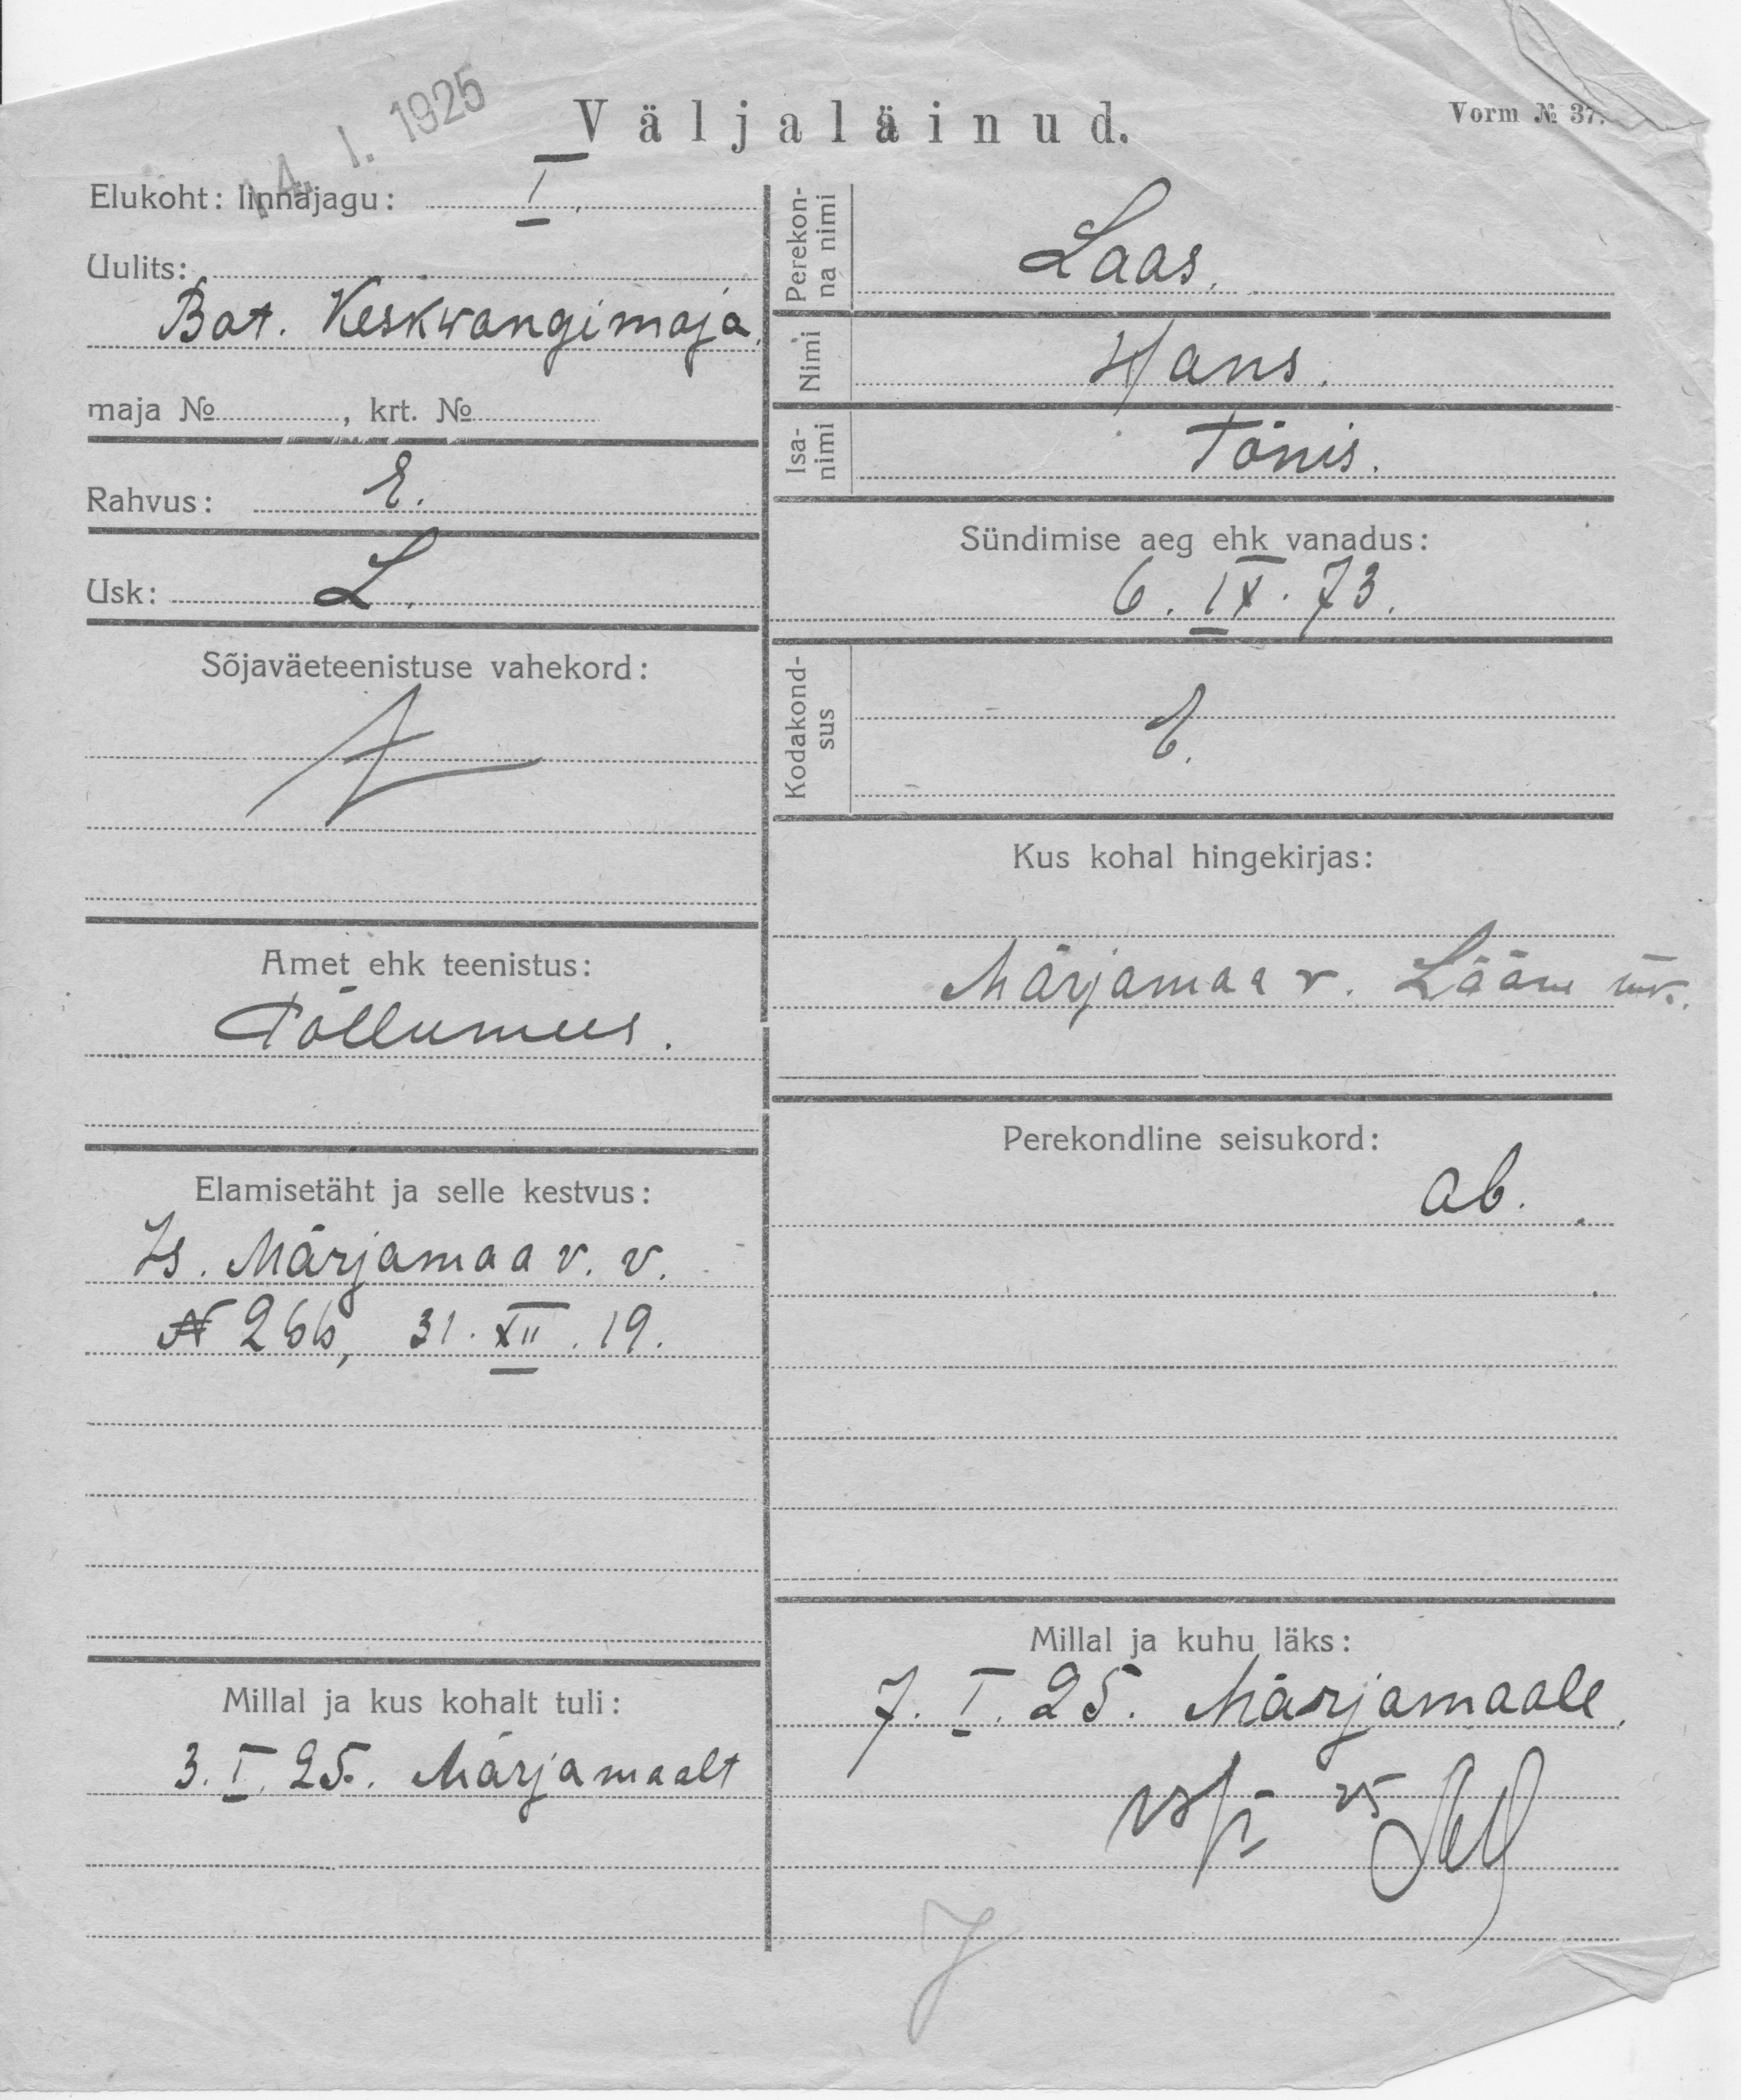 14. I. 1925
Väljaläinud.
Vorm № 37.
Elukoht: linnajagu: I.
Uulits:
Bat. Keskwangimaja.
maja № , krt. №
Rahvus: E.
Usk: L.
Sõjaväeteenistuse vahekord:
Amet ehk teenistus:
Põllumees.
Elamisetäht ja selle kestvus:
Is. Märjamaa v. v.
N 266, 31. XII. 19.
Millal ja kus kohalt tuli:
3. I. 25. Märjamaalt
Perekon-
na nimi
Laas.
Nimi
Hans.
Isa-
nimi
Tõnis.
Sündimise aeg ehk vanadus:
6. IX. 73.
Kodakond-
sus
E.
Kus kohal hingekirjas:
Märjamaa v. Lääne mk.
Perekondline seisukord:
ab.
Millal ja kuhu läks:
7. I. 25. Märjamaale.